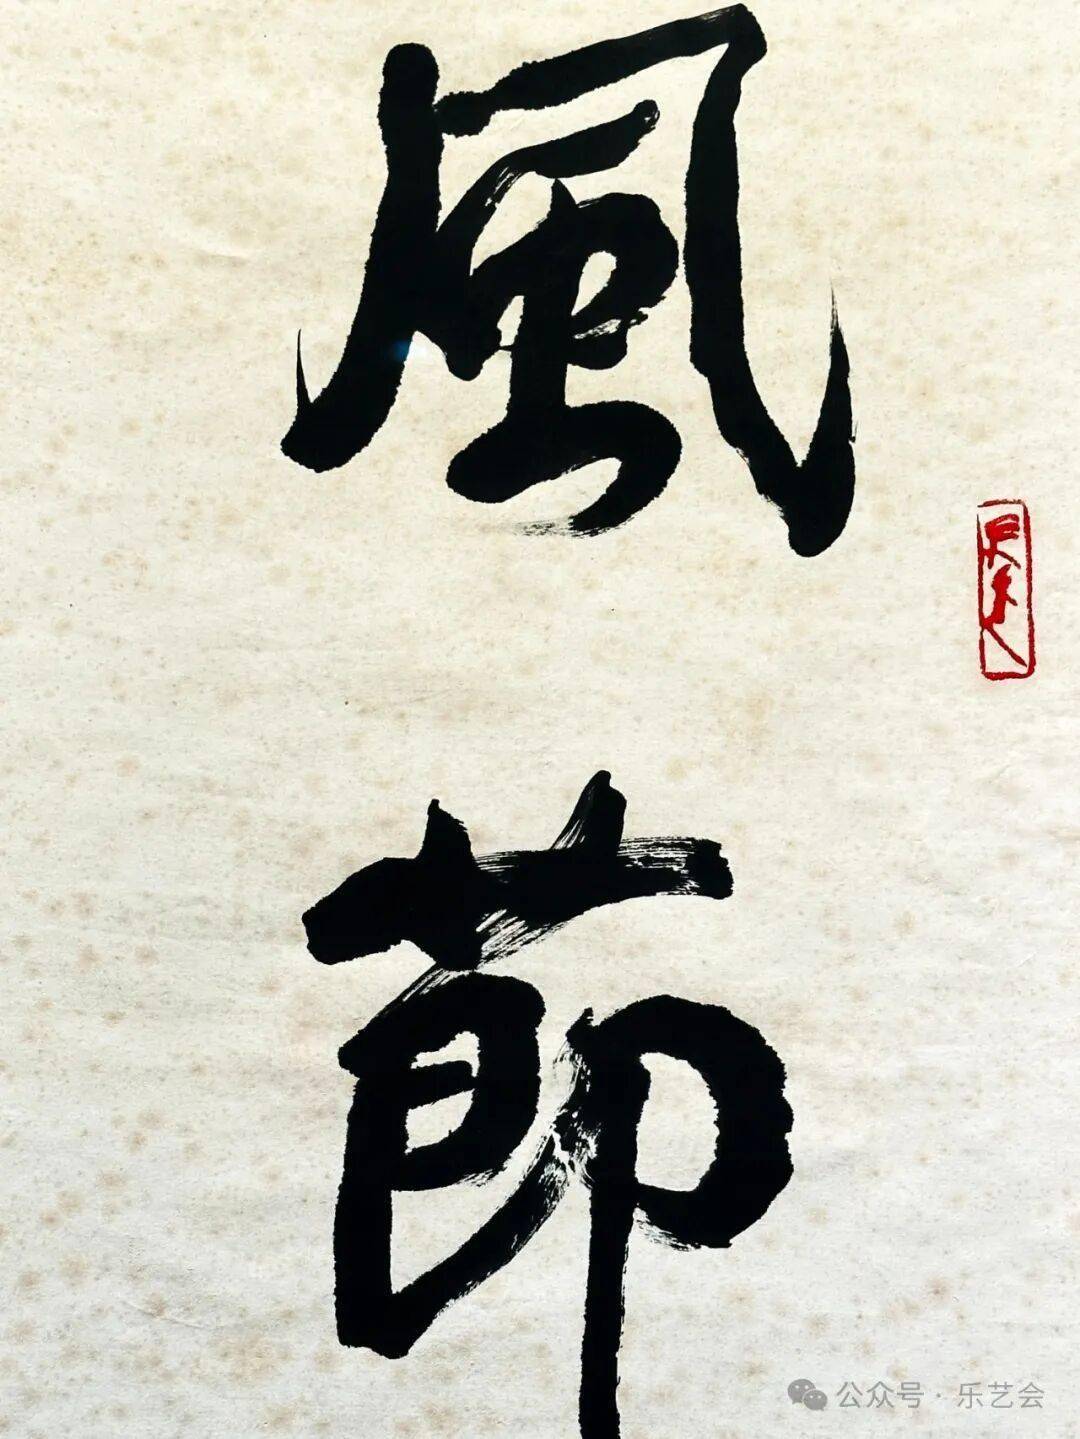 風
節
公众号·乐艺会